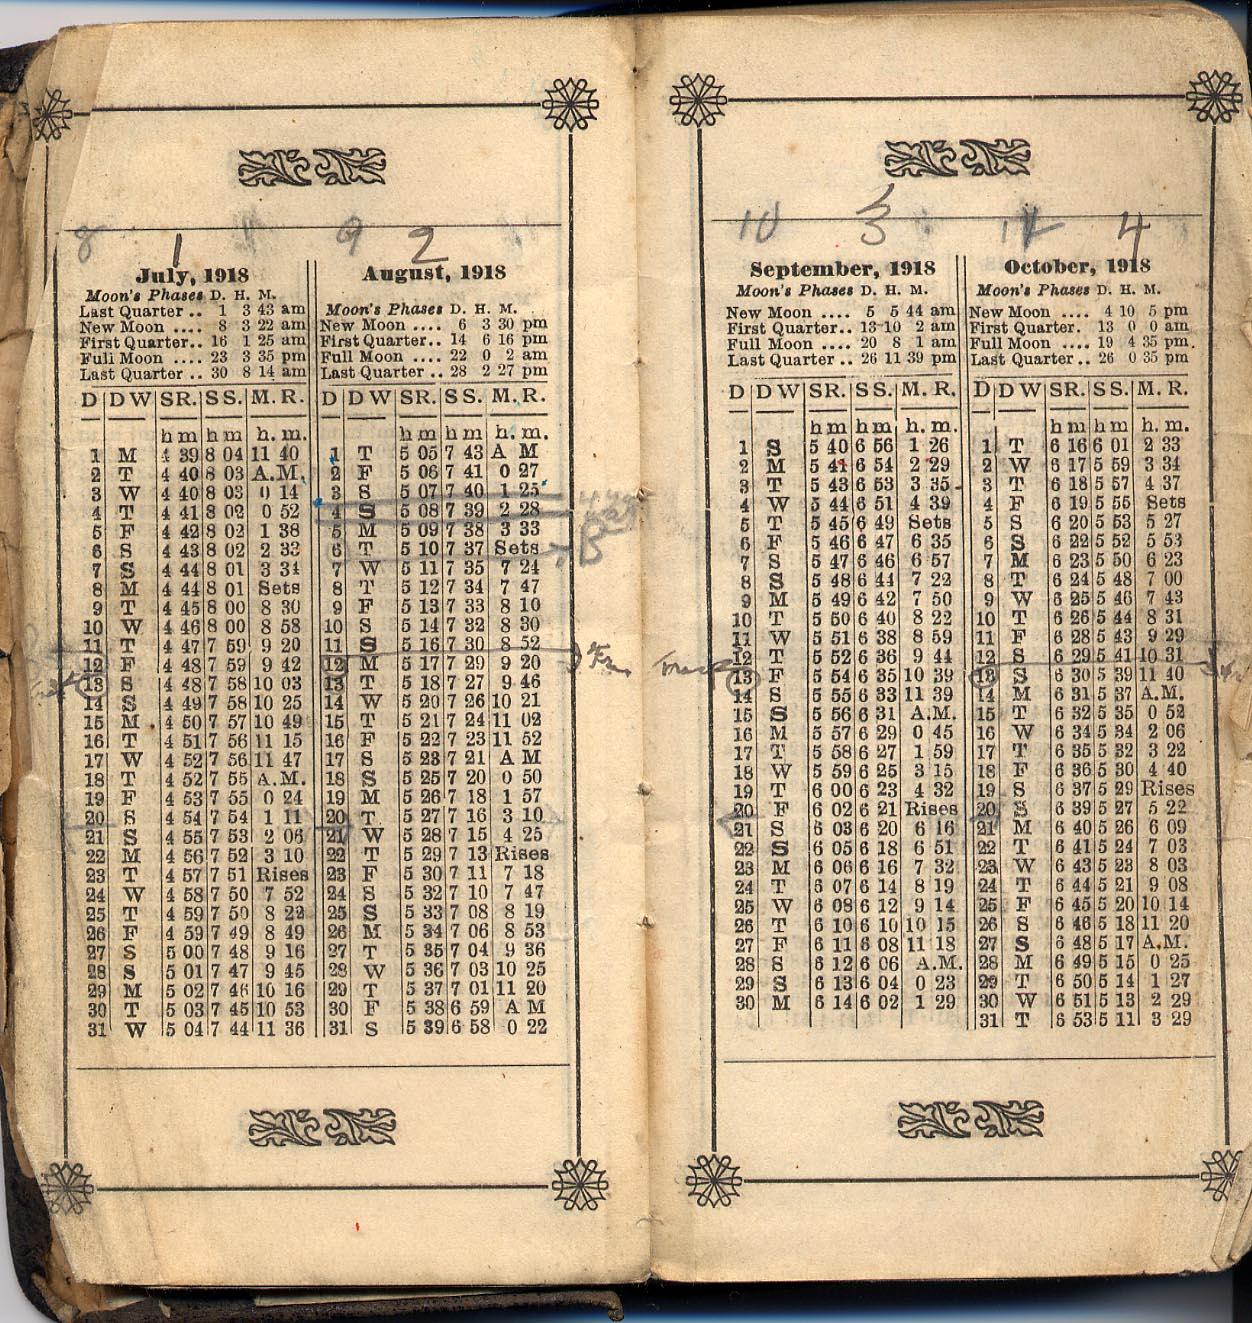 8 1 9 2
July, 1918
Moon's Phases D. H. M.
Last Quarter .. 1 3 43 am
New Moon .... 8 3 22 am
First Quarter.. 16 1 25 am
Full Moon .... 23 3 35 pm
Last Quarter .. 30 8 14 am
D D W SR. SS. M. R.
h m h m h. m.
1 M 4 39 8 04 11 40
2 T 4 40 8 03 A.M.
3 W 4 40 8 03 0 14
4 T 4 41 8 02 0 52
5 F 4 42 8 02 1 38
6 S 4 43 8 02 2 33
7 S 4 44 8 01 3 34
8 M 4 44 8 01 Sets
9 T 4 45 8 00 8 30
10 W 4 46 8 00 8 58
11 T 4 47 7 59 9 20
12 F 4 48 7 59 9 42
13 S 4 48 7 58 10 03
14 S 4 49 7 58 10 25
15 M 4 50 7 57 10 49
16 T 4 51 7 56 11 15
17 W 4 52 7 56 11 47
18 T 4 52 7 55 A.M.
19 F 4 53 7 55 0 24
20 S 4 54 7 54 1 11
21 S 4 55 7 53 2 06
22 M 4 56 7 52 3 10
23 T 4 57 7 51 Rises
24 W 4 58 7 50 7 52
25 T 4 59 7 50 8 22
26 F 4 59 7 49 8 49
27 S 5 00 7 48 9 16
28 S 5 01 7 47 9 45
29 M 5 02 7 46 10 16
30 T 5 03 7 45 10 53
31 W 5 04 7 44 11 36
August, 1918
Moon's Phases D. H. M.
New Moon .... 6 3 30 pm
First Quarter.. 14 6 16 pm
Full Moon .... 22 0 2 am
Last Quarter .. 28 2 27 pm
D D W SR. SS. M. R.
h m h m h. m.
1 T 5 05 7 43 A M
2 F 5 06 7 41 0 27
3 S 5 07 7 40 1 25
4 S 5 08 7 39 2 28
5 M 5 09 7 38 3 33
6 T 5 10 7 37 Sets
7 W 5 11 7 35 7 24
8 T 5 12 7 34 7 47
9 F 5 13 7 33 8 10
10 S 5 14 7 32 8 30
11 S 5 16 7 30 8 52
12 M 5 17 7 29 9 20
13 T 5 18 7 27 9 46
14 W 5 20 7 26 10 21
15 T 5 21 7 24 11 02
16 F 5 22 7 23 11 52
17 S 5 23 7 21 A M
18 S 5 25 7 20 0 50
19 M 5 26 7 18 1 57
20 T 5 27 7 16 3 10
21 W 5 28 7 15 4 25
22 T 5 29 7 13 Rises
23 F 5 30 7 11 7 18
24 S 5 32 7 10 7 47
25 S 5 33 7 08 8 19
26 M 5 34 7 06 8 53
27 T 5 35 7 04 9 36
28 W 5 36 7 03 10 25
29 T 5 37 7 01 11 20
30 F 5 38 6 59 A M
31 S 5 39 6 58 0 22
10 3 4
September, 1918
Moon's Phases D. H. M.
New Moon .... 5 5 44 am
First Quarter.. 13 10 2 am
Full Moon .... 20 8 1 am
Last Quarter .. 26 11 39 pm
D D W SR. SS. M. R.
h m h m h. m.
1 S 5 40 6 56 1 26
2 M 5 41 6 54 2 29
3 T 5 43 6 53 3 35
4 W 5 44 6 51 4 39
5 T 5 45 6 49 Sets
6 F 5 46 6 47 6 35
7 S 5 47 6 46 6 57
8 S 5 48 6 44 7 22
9 M 5 49 6 42 7 50
10 T 5 50 6 40 8 22
11 W 5 51 6 38 8 59
12 T 5 52 6 36 9 44
13 F 5 54 6 35 10 39
14 S 5 55 6 33 11 39
15 S 5 56 6 31 A.M.
16 M 5 57 6 29 0 45
17 T 5 58 6 27 1 59
18 W 5 59 6 25 3 15
19 T 6 00 6 23 4 32
20 F 6 02 6 21 Rises
21 S 6 03 6 20 6 16
22 S 6 05 6 18 6 51
23 M 6 06 6 16 7 32
24 T 6 07 6 14 8 19
25 W 6 08 6 12 9 14
26 T 6 10 6 10 10 15
27 F 6 11 6 08 11 18
28 S 6 12 6 06 A.M.
29 S 6 13 6 04 0 23
30 M 6 14 6 02 1 29
October, 1918
Moon's Phases D. H. M.
New Moon .... 4 10 5 pm
First Quarter. 13 0 0 am
Full Moon .... 19 4 35 pm.
Last Quarter.. 26 0 35 pm
D D W SR. SS. M. R.
h m h m h. m.
1 T 6 16 6 01 2 33
2 W 6 17 5 59 3 34
3 T 6 18 5 57 4 37
4 F 6 19 5 55 Sets
5 S 6 20 5 53 5 27
6 S 6 22 5 52 5 53
7 M 6 23 5 50 6 23
8 T 6 24 5 48 7 00
9 W 6 25 5 46 7 43
10 T 6 26 5 44 8 31
11 F 6 28 5 43 9 29
12 S 6 29 5 41 10 31
13 S 6 30 5 39 11 40
14 M 6 31 5 37 A.M.
15 T 6 32 5 35 0 52
16 W 6 34 5 34 2 06
17 T 6 35 5 32 3 22
18 F 6 36 5 30 4 40
19 S 6 37 5 29 Rises
20 S 6 39 5 27 5 22
21 M 6 40 5 26 6 09
22 T 6 41 5 24 7 03
23 W 6 43 5 23 8 03
24 T 6 44 5 21 9 08
25 F 6 45 5 20 10 14
26 S 6 46 5 18 11 20
27 S 6 48 5 17 A.M.
28 M 6 49 5 15 0 25
29 T 6 50 5 14 1 27
30 W 6 51 5 13 2 29
31 T 6 53 5 11 3 29